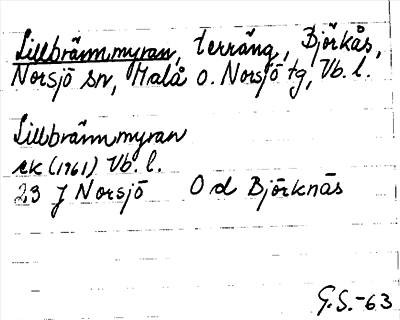 Lillbrännmyran, terräng, Björkås,
Norsjö sn, Malå o. Norsjö tg, Vb. l.
Lillbrännmyran
rk (1961) Vb. l.
23 J Norsjö O d Björknäs
G.S.-63